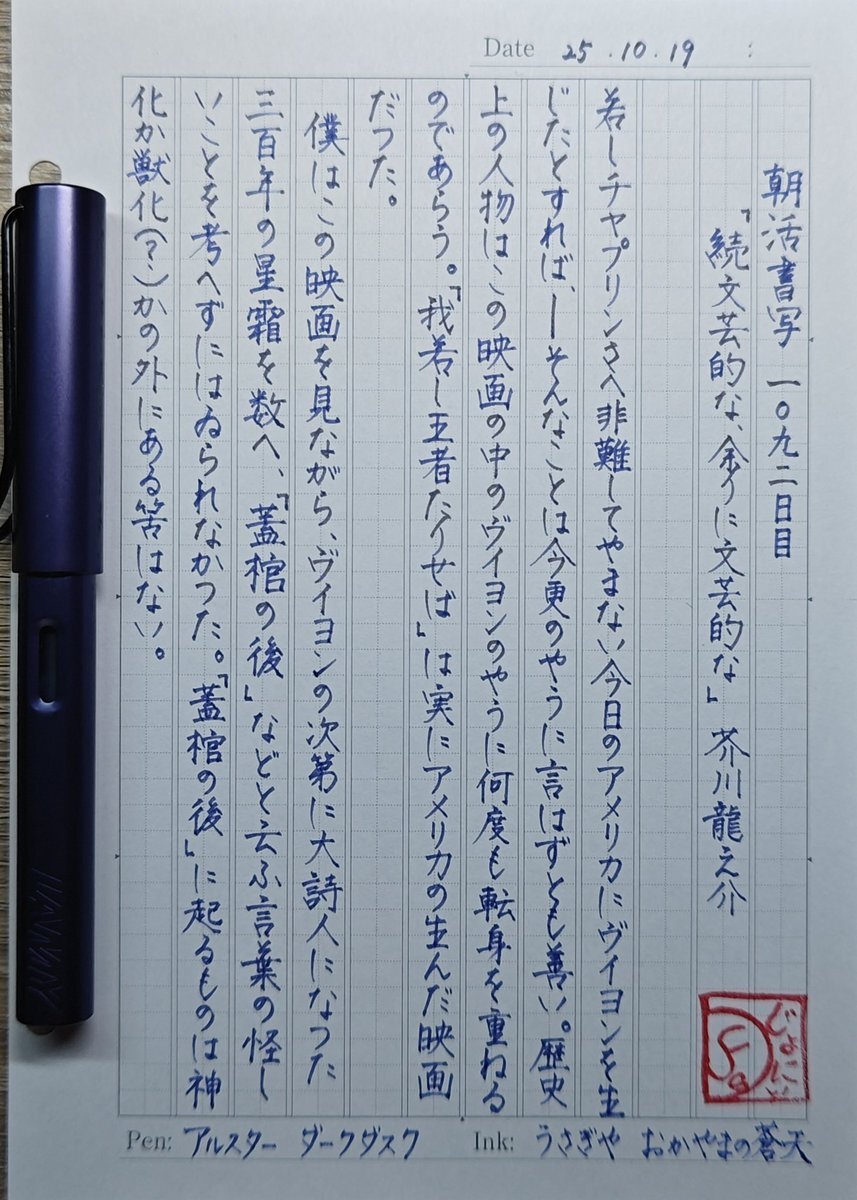 Date 25.10.19 :
朝活書写 一〇九二日目
「続文芸的な、余りに文芸的な」 芥川龍之介
若しチヤプリンさへ非難してやまない今日のアメリカにヴイヨンを生
じたとすれば、―そんなことは今更のやうに言はずとも善い。歴史
上の人物はこの映画の中のヴイヨンのやうに何度も転身を重ねる
のであらう。「我若し王者たりせば」は実にアメリカの生んだ映画
だつた。
僕はこの映画を見ながら、ヴイヨンの次第に大詩人になつた
三百年の星霜を数へ、「蓋棺の後」などと云ふ言葉の怪し
いことを考へずにはゐられなかつた。「蓋棺の後」に起るものは神
化か獣化(?)かの外にある筈はない。
じよにい
Pen: アルスター ダークダスク
Ink: うさぎや おかやまの蒼天
LAMY